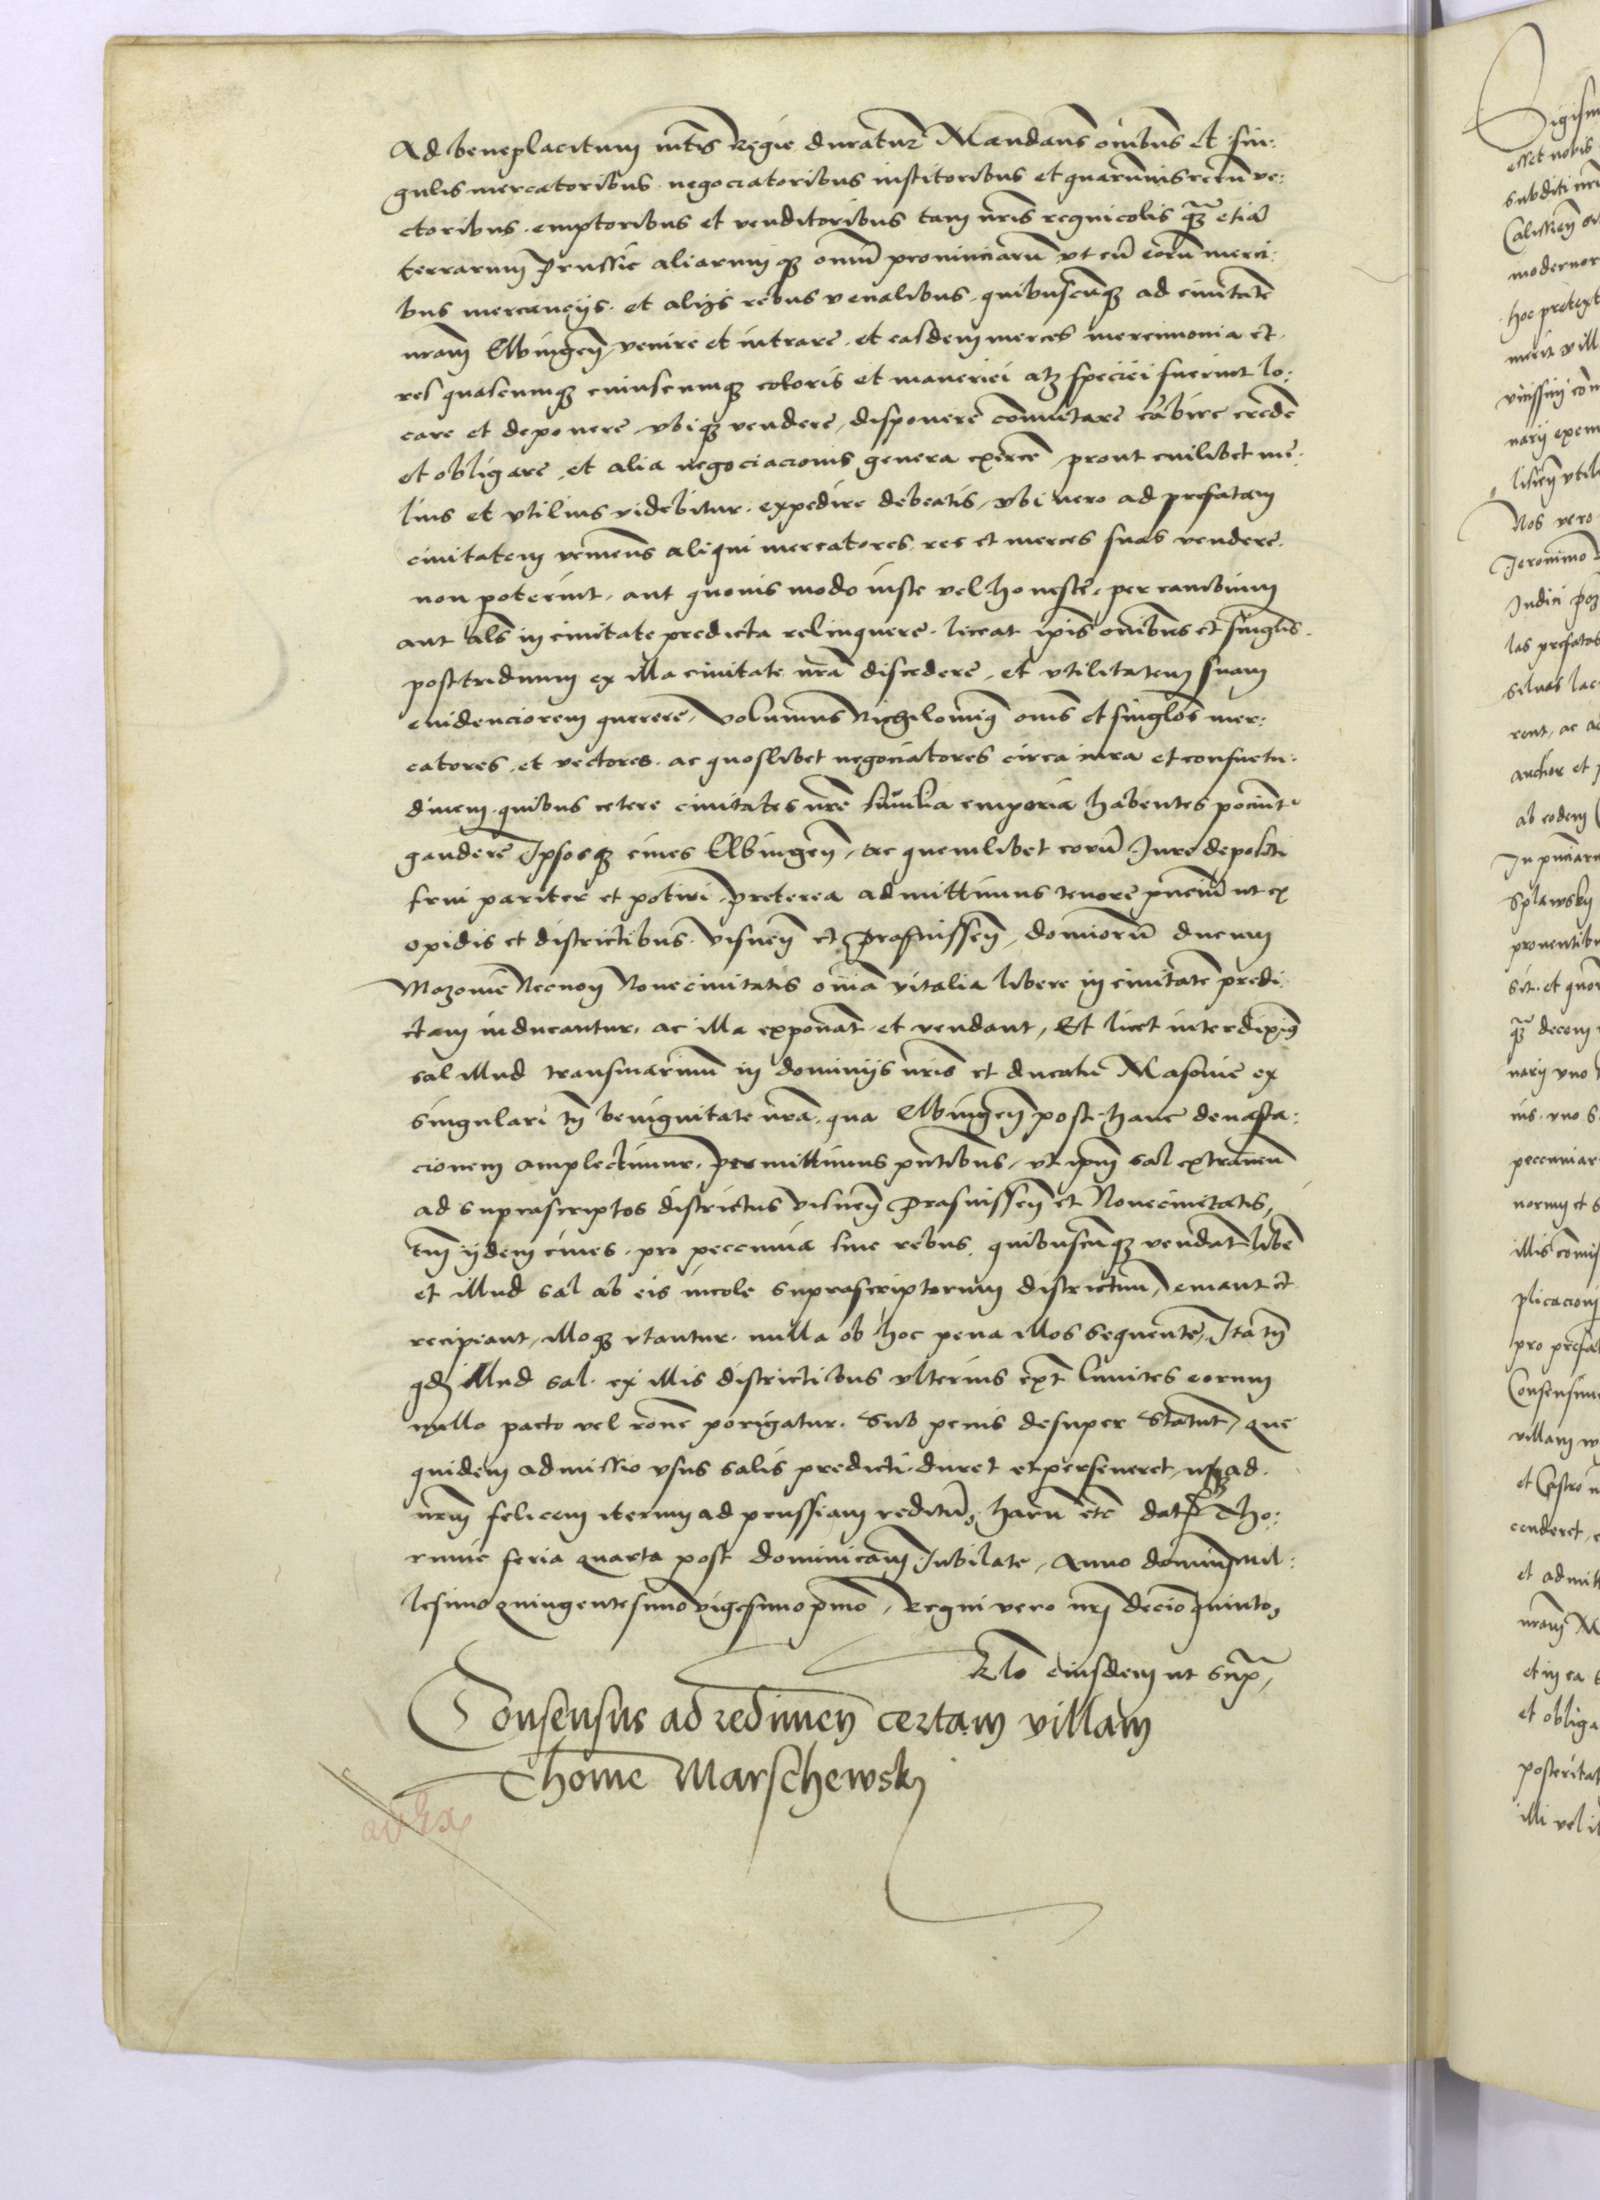 Ad beneplacitum mtis Regie duratur Mandans oibus et sin:
gulis mercatoribus negociatoribus institoribus et quarumuis rerum ve:
ctoribus emptoribus et venditoribus tam nris regnicolis qz etia
terrarum Prussie aliarumqz omiu prouinciaru vt cu eoru merci:
bus mercanciis et aliis rebus venalibus quibuscuqz ad ciuitate
nram Elbingen venire et intrare et easdem merces mercimonia et
res quascumqz cuiuscumqz coloris et maneriei atqz speciei fuerint lo:
care et deponere vbiqz vendere disponere comutare cabire crede
et obligare et alia negociacionis genera exerce prout cuilibet me:
lius et vtilius videbitur expedire debeatis vbi vero ad prefatam
ciuitatem veniens aliqui mercatores res et merces suas vendere
non poterint aut quouis modo iuste vel honeste per cambium
aut als in ciuitate predicta relinquere liceat ipis oibus et singlis
post triduum ex illa ciuitate nra discedere et vtilitatem suam
euidenciorem querere Volumus Nichilomin omes et singlos mer:
catores et vectores ac quoslibet negociatores circa iura et consuetu:
dinem quibus cetere ciuitates nre similia emporia habentes pociunt
gaudere Ipsosqz ciues Elbingen ac quemlibet eoru Jure depositi
frui pariter et potiri preterea admittimus tenore pnciu ut ex
opidis et districtibus Visnen et Prasnissen domioru ducum
Mazouie Necnon Noue ciuitatis oia vitalia libere in ciuitate predi
ctam inducantur ac illa exponat et vendant Et licet interdixim
sal illud transmarinu in dominiis nris et ducatu Masouie ex
singulari tn benignitate nra qua Elbingen post hanc deuasta:
cionem amplectimur permittimus pntibus vt ipm sal extraneu
ad suprascriptos districtus Visnen Prasnissen et Noue ciuitatis
tm iidem ciues pro peccunia siue rebus quibuscuqz vendat libe
et illud sal ab eis incole suprascriptorum districtuu emant et
recipeant illoqz vtantur nulla ob hoc pena illos sequente Ita tn
qd illud sal ex illis districtibus vlterius ext limites eorum
nullo pacto vel rone porigatur Sub penis desuper Statut que
quidem admissio vsus salis predicti duret et perseueret usqz ad
nrm felicem iterum ad prussiam reditu haru etc dat Tho:
runie feria quarta post dominicam Jubilate Anno domini mil:
lesimo quingentesimo vigesimo pmo Regni vero nri decio quinto
Rlo eiusdem ut supra
Consensus ad redimen certam villam
Thome Marschewski